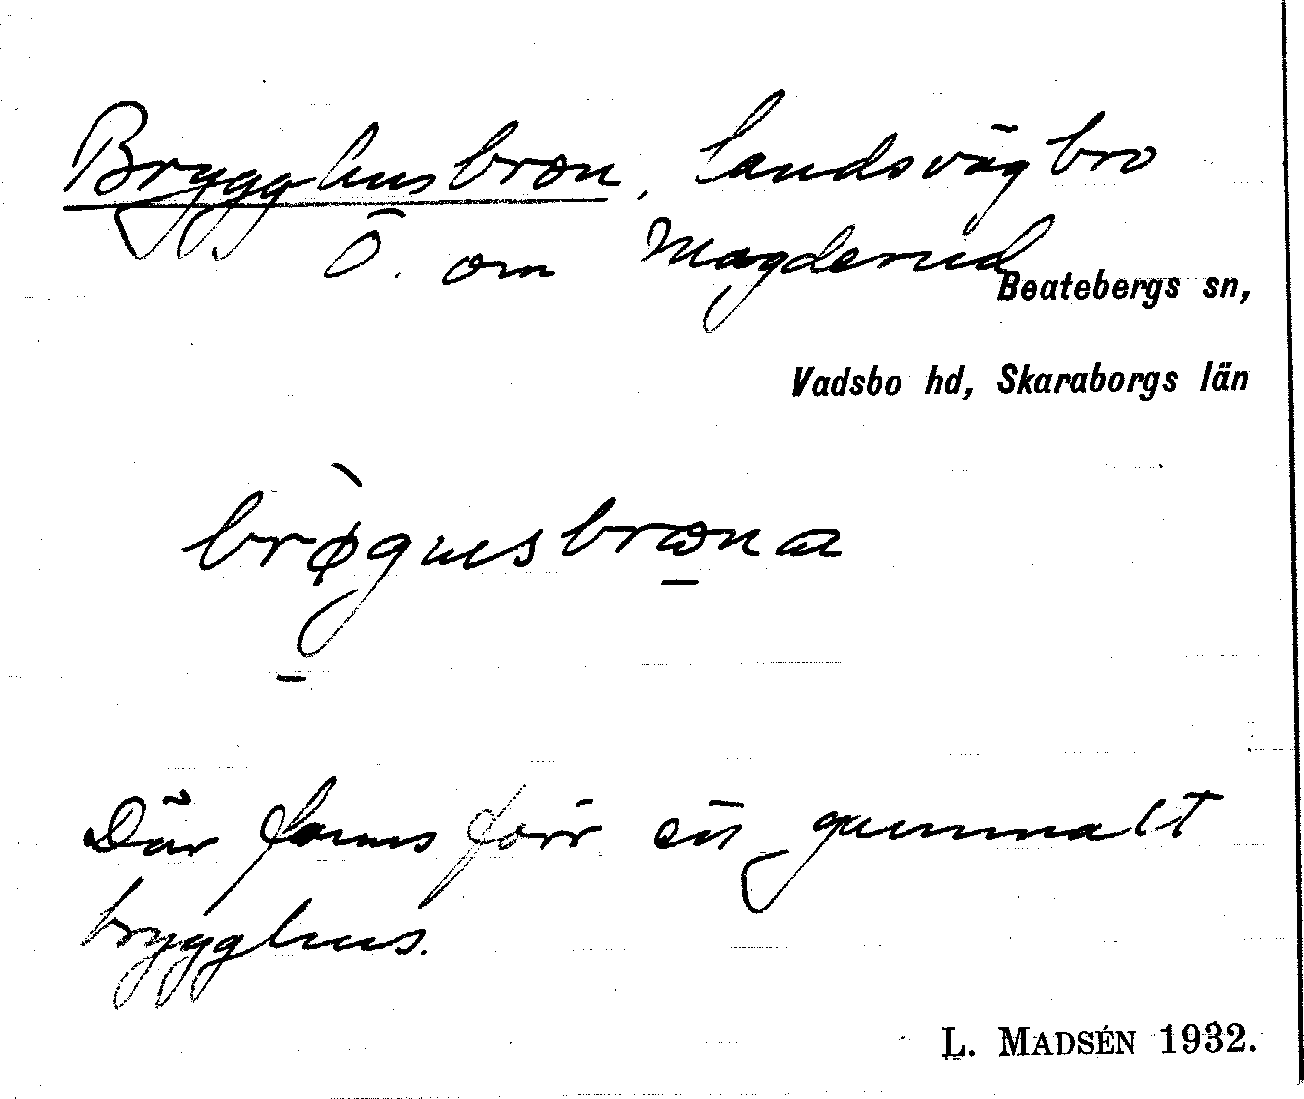 Brygghusbron, landsvägbro
Ö. om Magderud
Beatebergs sn,
Vadsbo hd, Skaraborgs län
Där fanns förr ett gammalt
brygghus.
L. MADSÉN 1932.